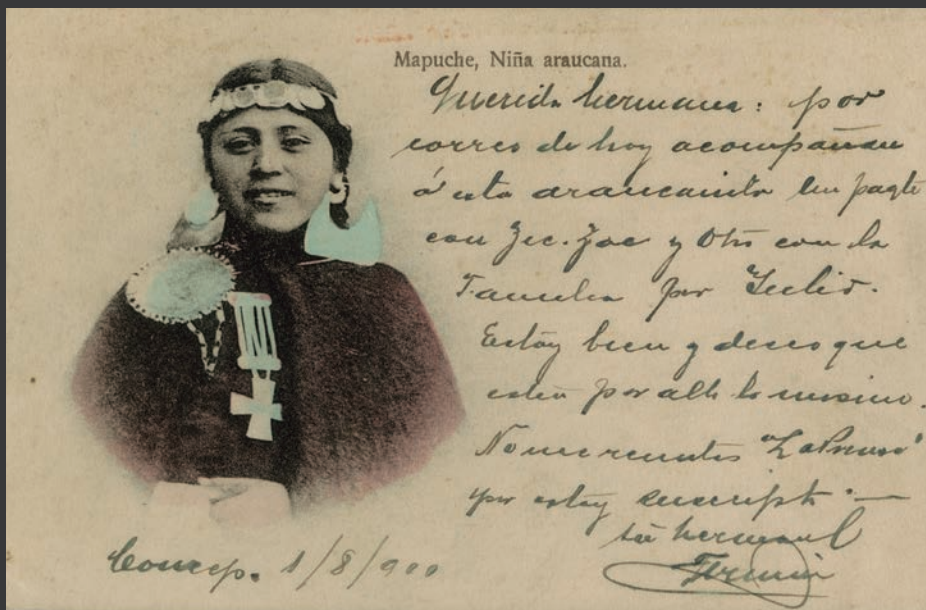 Mapuche, Niña araucana.
Querida hermana: por
correo de hoy acompañan
á esta araucanita un paqte
con Zic-Zac y Otro con la
Familia por Julio.
Estoy bien y deseo que
estén por allá lo mismo.
No me remitas "La Prensa"
por estoy suscripto.—
tu hermano
Fermín
Concep. 1/8/900